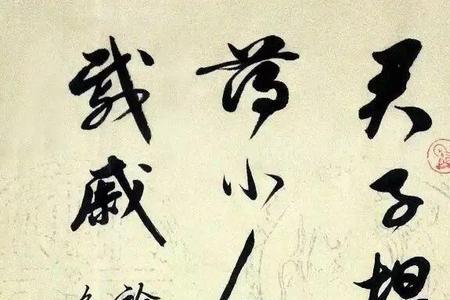 君子坦
荡小人
戚戚